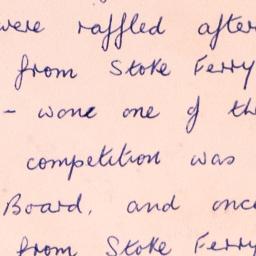 were raffled after
from Stoke Ferry
- wone one of th
competition was
Board, and onc
from Stoke Ferry